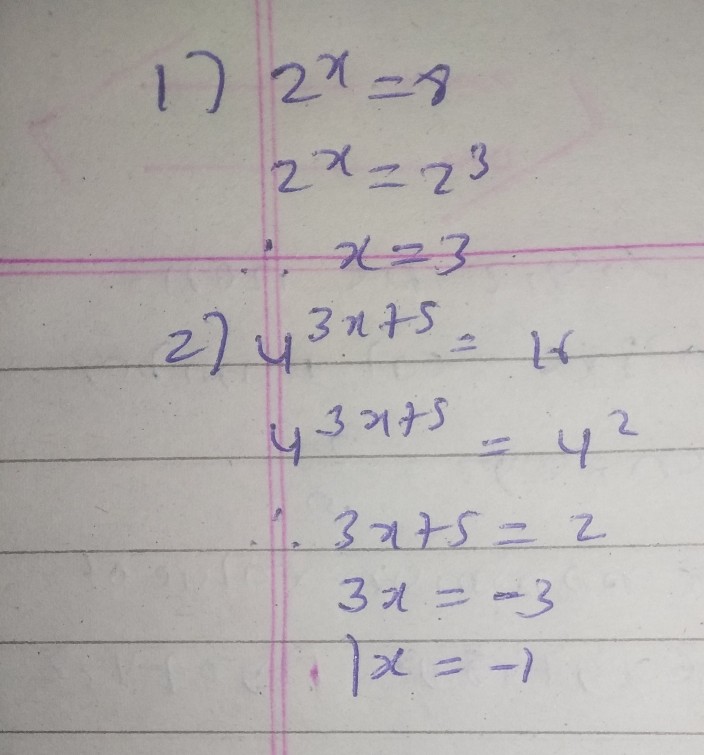 1) 2^x = 8
2^x = 2^3
∴ x = 3
2) 4^3x+5 = 16
4^3x+5 = 4^2
∴ 3x+5 = 2
3x = -3
x = -1